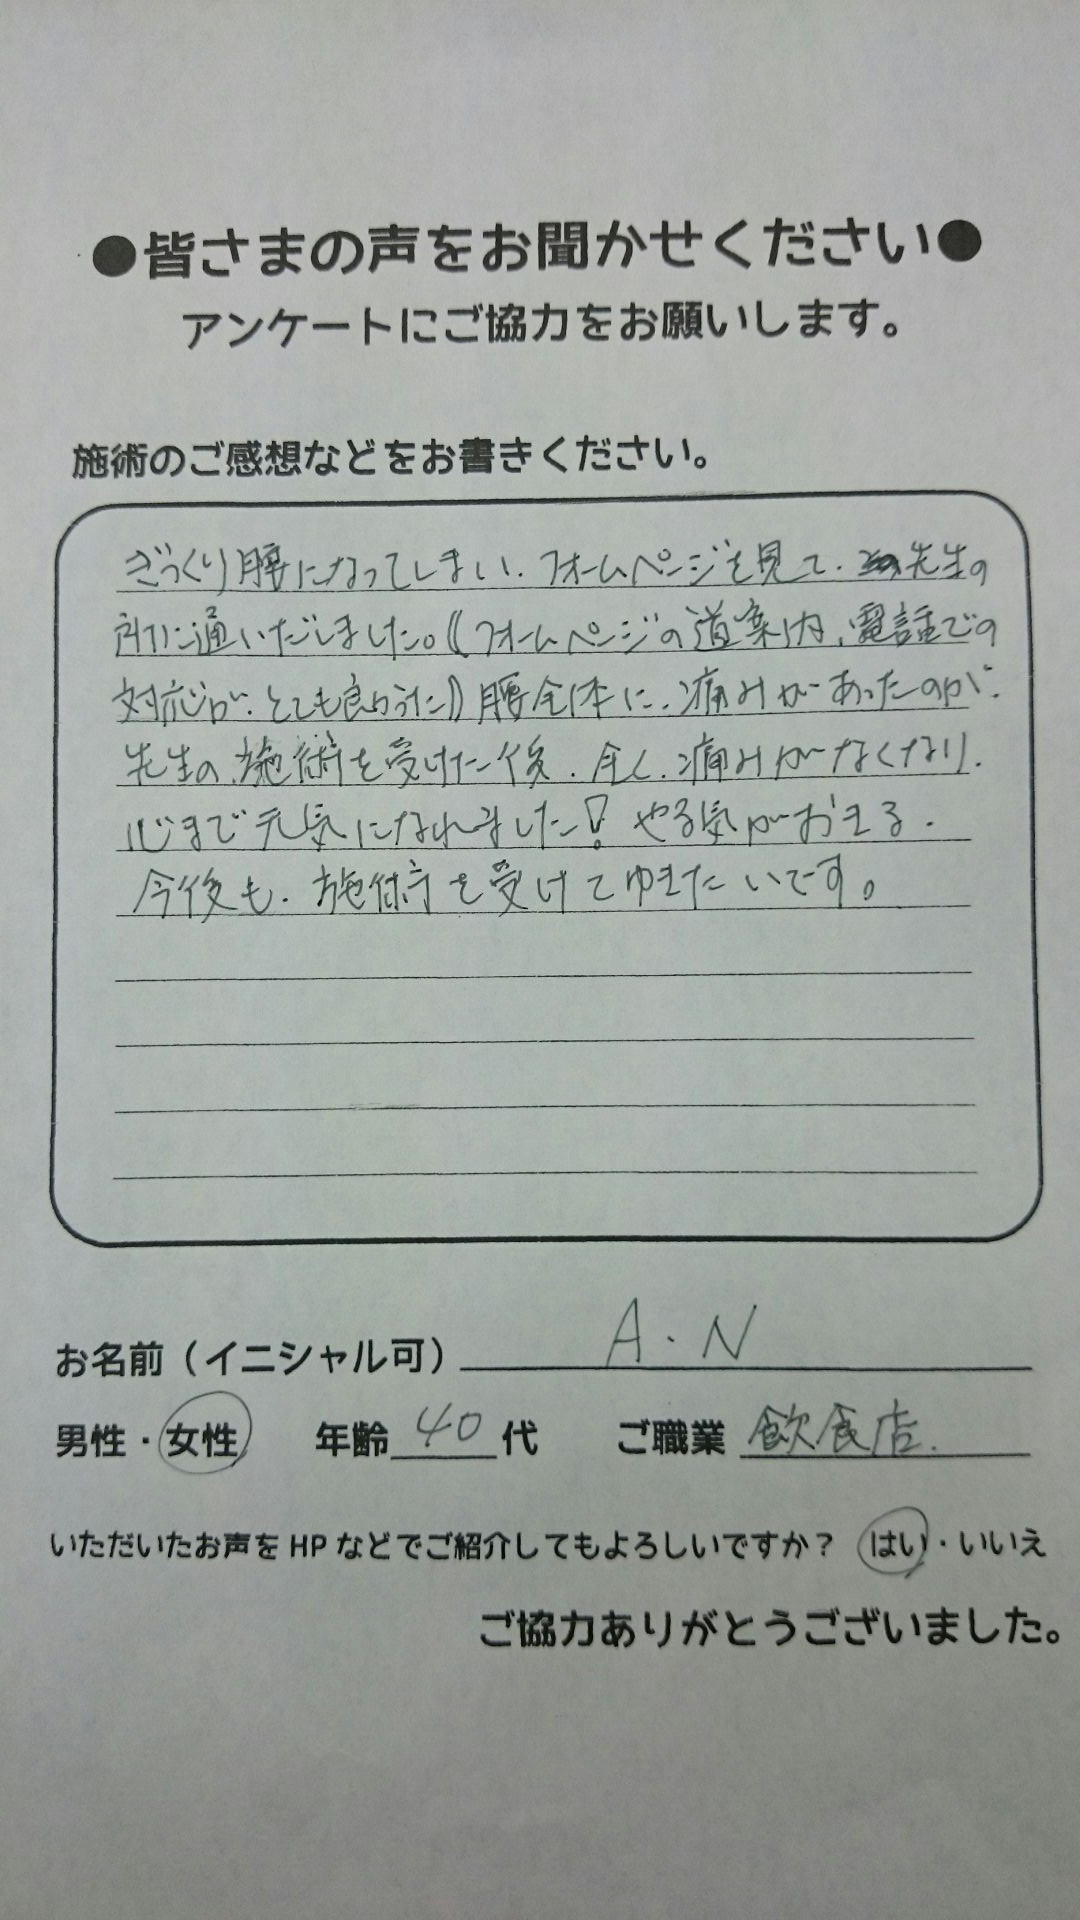 ●皆さまの声をお聞かせください●
アンケートにご協力をお願いします。
施術のご感想などをお書きください。
ぎっくり腰になってしまい、フォームページを見て、先生の
所に通いだしました。(フォームページの道案内、電話での
対応が、とても良かった)腰全体に、痛みがあったのが、
先生の、施術を受けた後、全く、痛みがなくなり、
心まで元気になれました!やる気がおきる、
今後も、施術を受けてゆきたいです。
お名前(イニシャル可) A・N
男性・女性 年齢 40 代 ご職業 飲食店
いただいたお声をHPなどでご紹介してもよろしいですか? はい・いいえ
ご協力ありがとうございました。